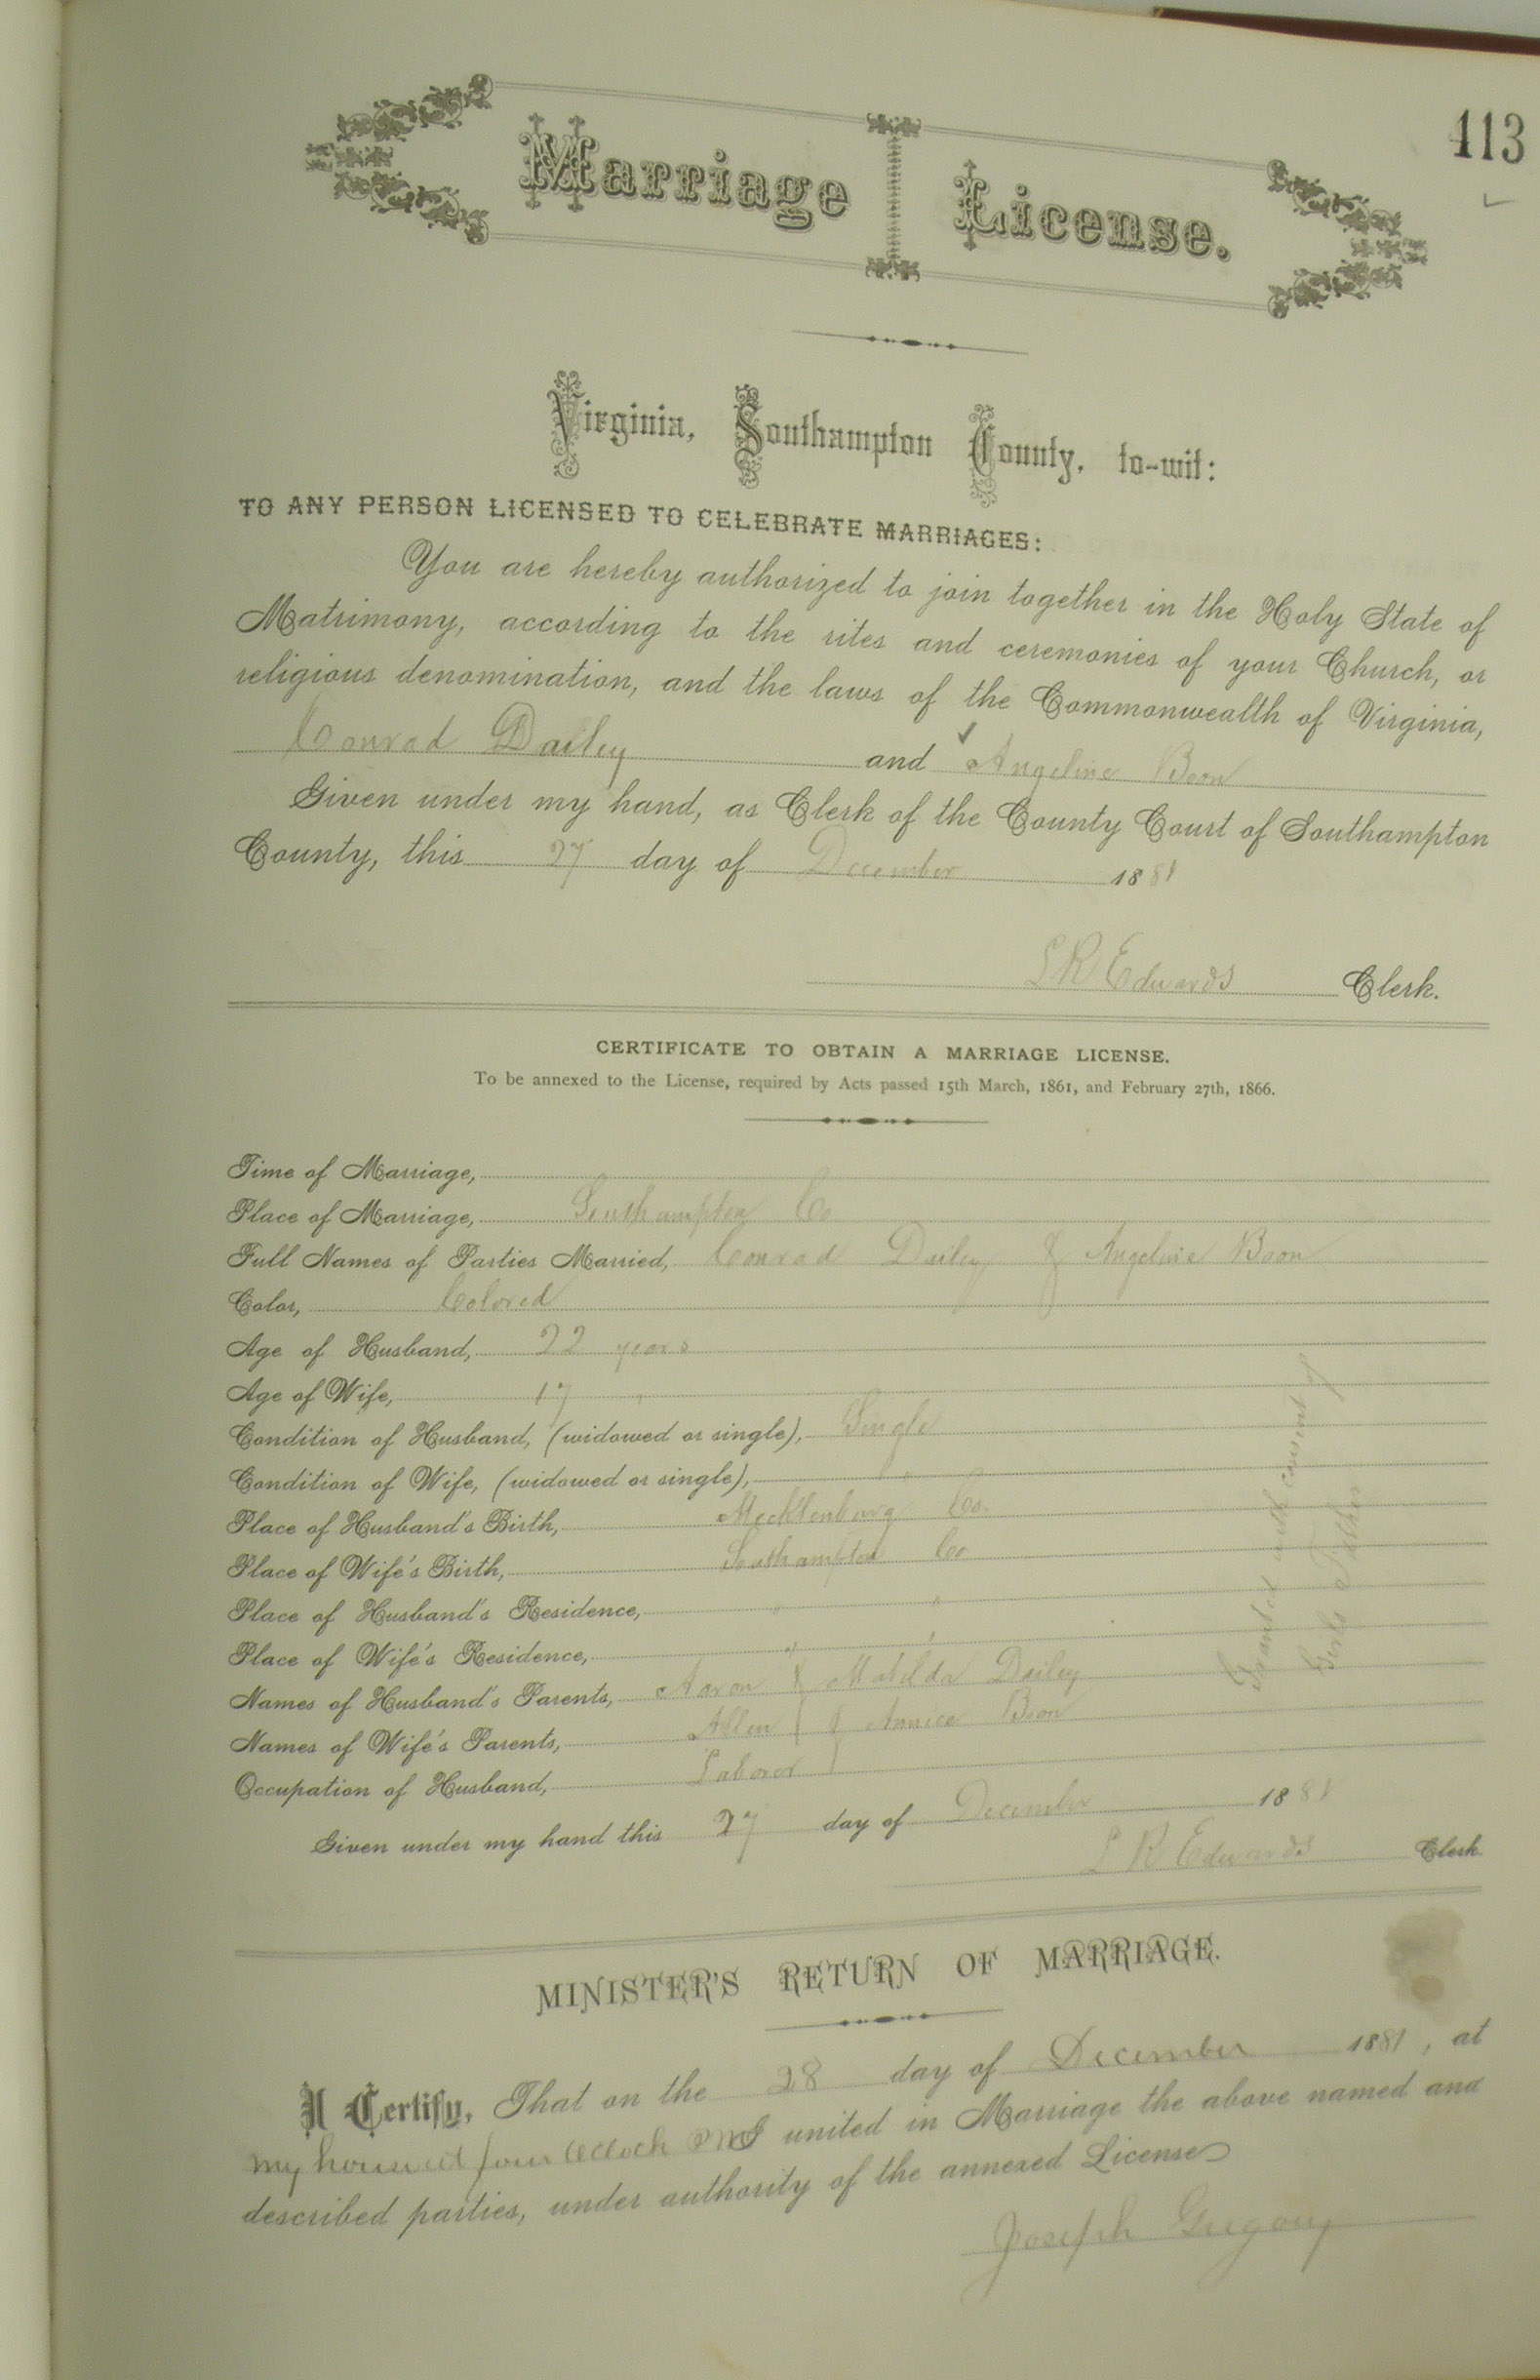 113
Marriage License.
Virginia, Southampton County, to-wit:
TO ANY PERSON LICENSED TO CELEBRATE MARRIAGES:
You are hereby authorized to join together in the Holy State of
Matrimony, according to the rites and ceremonies of your Church, or
religious denomination, and the laws of the Commonwealth of Virginia,
Conrad Dailey and Angeline Boon
Given under my hand, as Clerk of the County Court of Southampton
County, this 27 day of December 1881
L R Edwards Clerk.
CERTIFICATE TO OBTAIN A MARRIAGE LICENSE.
To be annexed to the License, required by Acts passed 15th March, 1861, and February 27th, 1866.
Time of Marriage,
Place of Marriage, Southampton Co
Full Names of Parties Married, Conrad Dailey & Angeline Boon
Color, Colored
Age of Husband, 22 years
Age of Wife, 17 "
Condition of Husband, (widowed or single), Single
Condition of Wife, (widowed or single), "
Place of Husband's Birth, Mecklenburg Co.
Place of Wife's Birth, Southampton Co
Place of Husband's Residence, " "
Place of Wife's Residence, " "
Names of Husband's Parents, Aaron & Matilda Dailey
Names of Wife's Parents, Allen & Annica Boon
Occupation of Husband, Laborer
Granted with consent of
Girls Father
Given under my hand this 27 day of December 1881
L R Edwards Clerk
MINISTER'S RETURN OF MARRIAGE.
I Certify, That on the 28 day of December 1881, at
my house at four Oclock PM I united in Marriage the above named and
described parties, under authority of the annexed License
Joseph Gregory